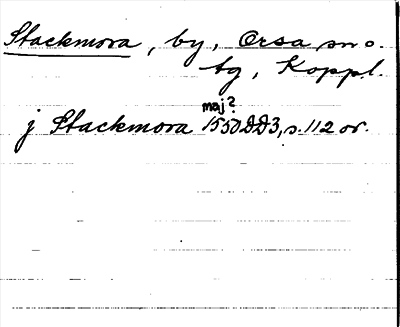 Stackmora, by, Orsa sn o.
tg, Koppl.
maj?
j Stackmora 1550 DD3, s. 112 or.